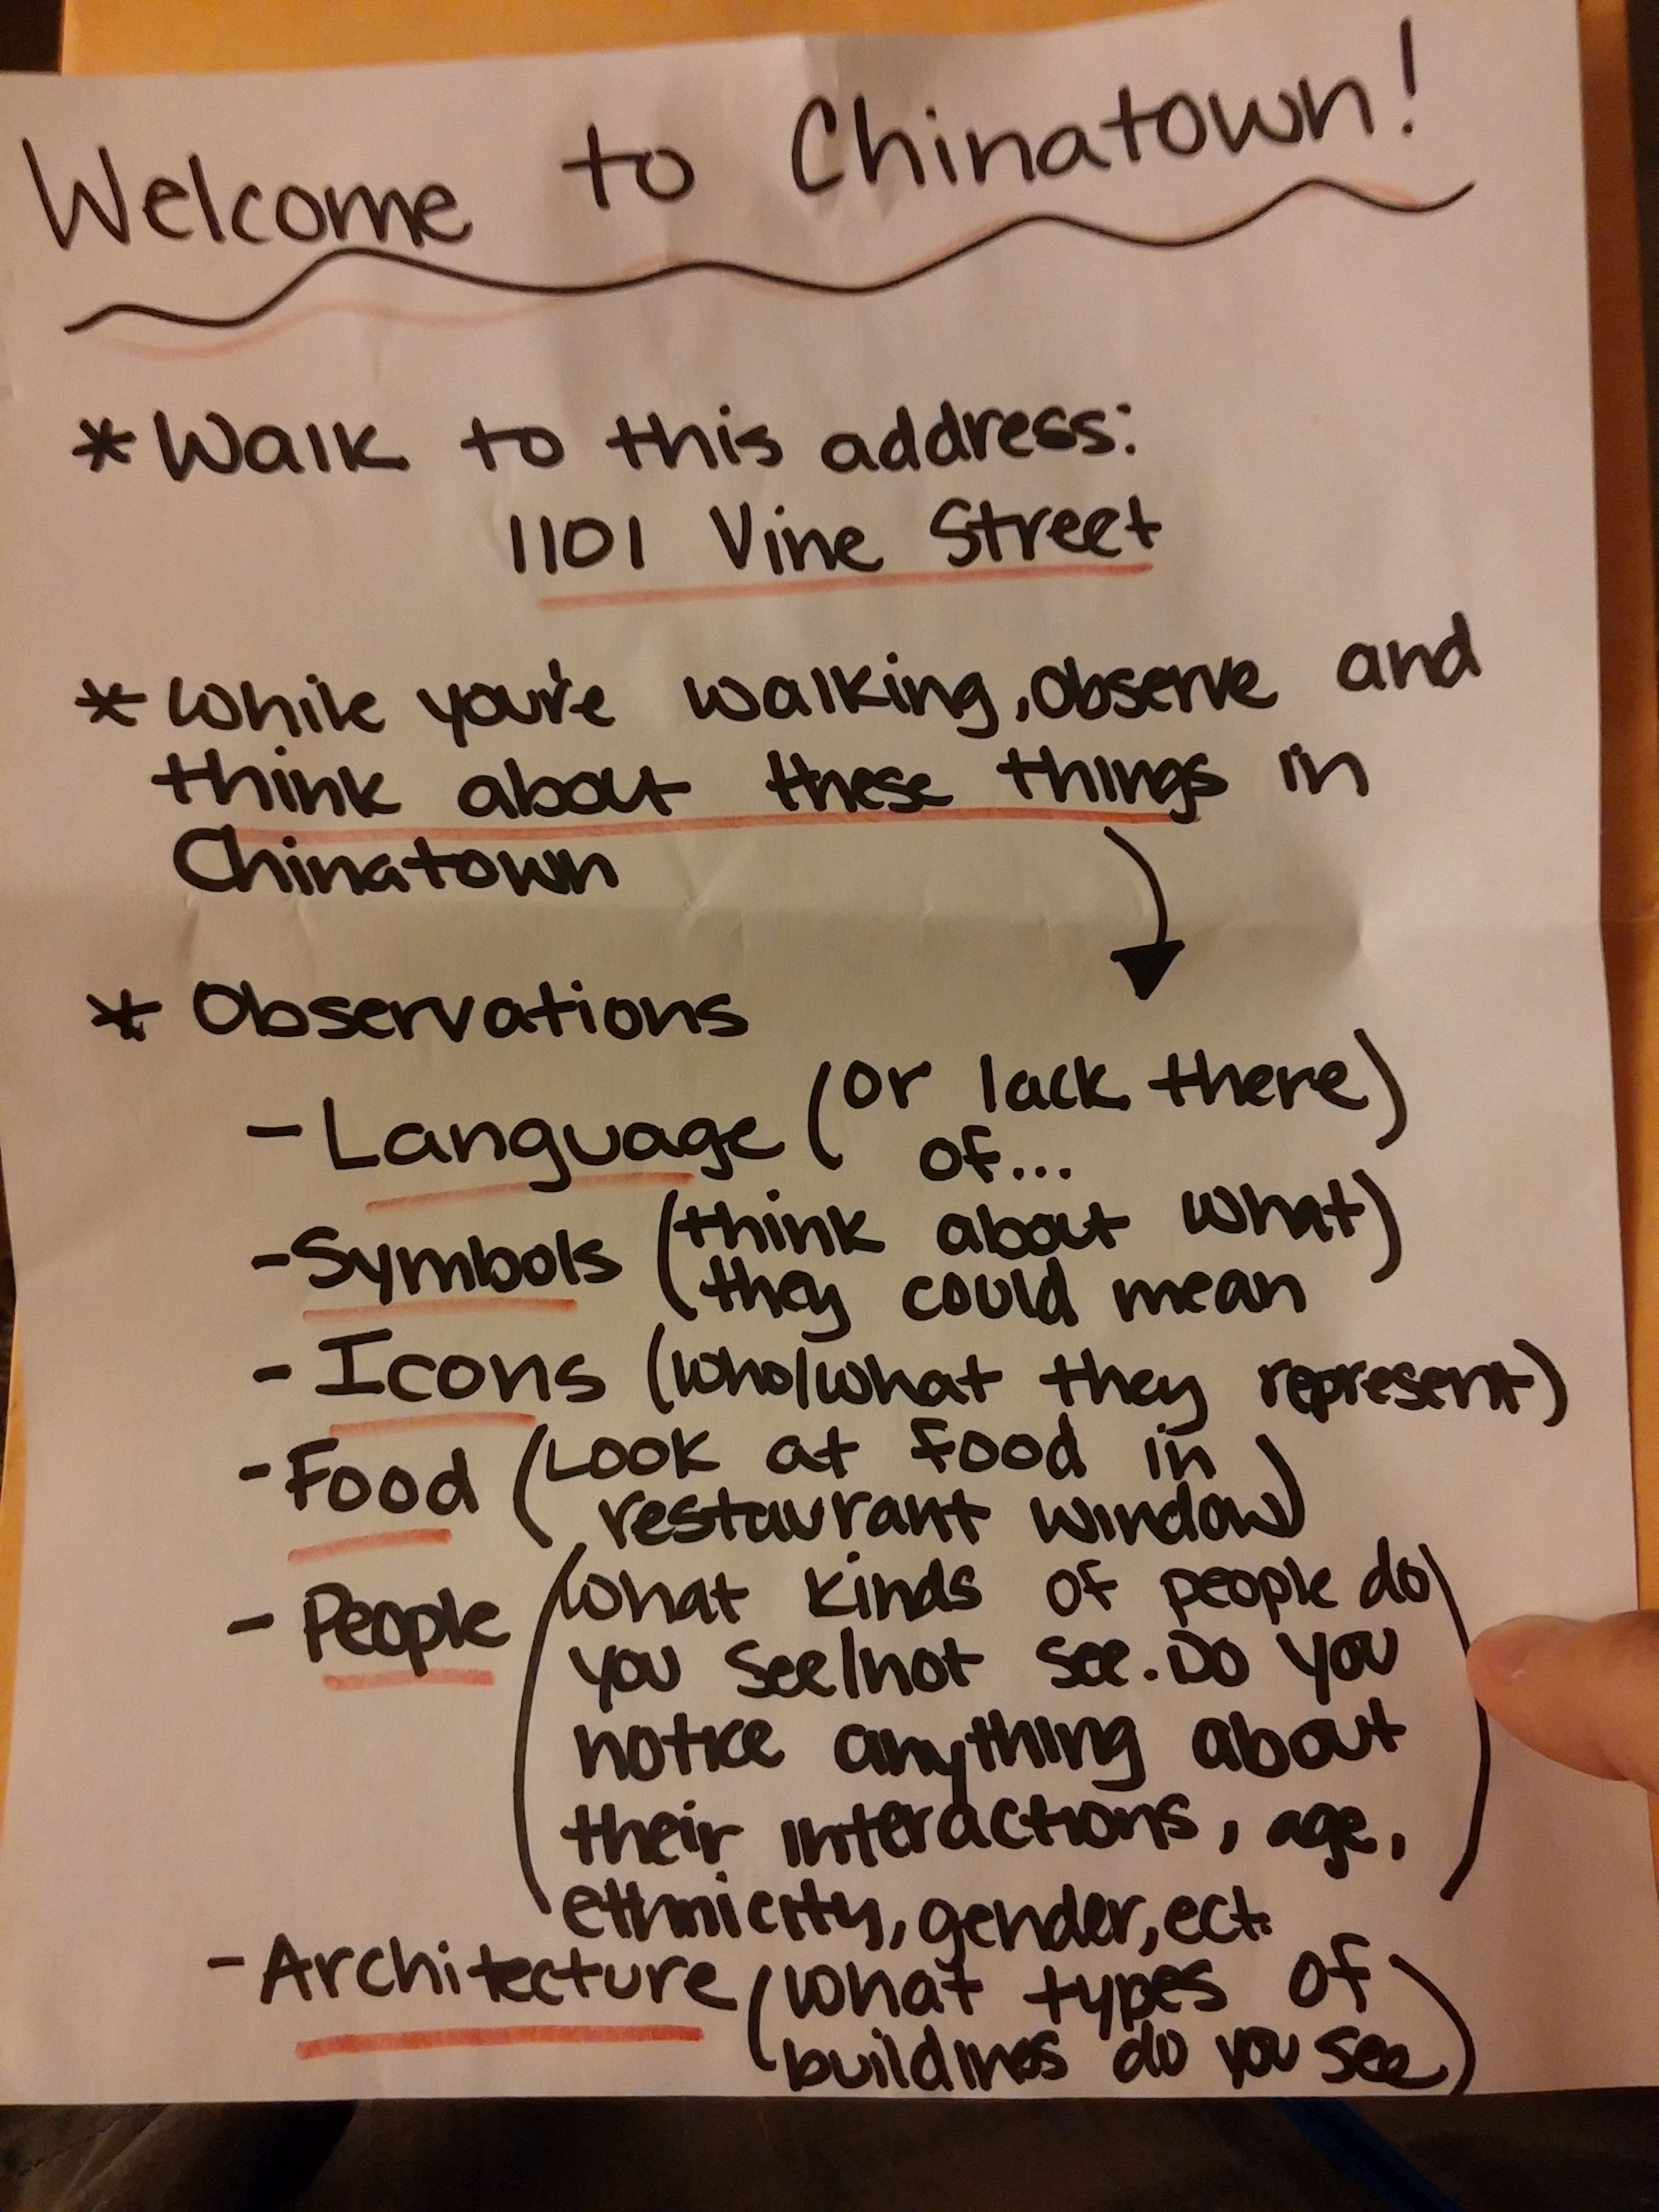 Welcome to Chinatown!
* Walk to this address:
1101 Vine Street
* While you're walking, observe and
think about these things in
Chinatown
* Observations
- Language (or lack there)
of...
- Symbols (think about what)
they could mean
- Icons (who/what they represent)
- Food (Look at food in
restaurant window)
- People (What kinds of people do
you see/not see. Do you
notice anything about
their interactions, age,
ethnicity, gender, ect.
- Architecture (what types of
buildings do you see)